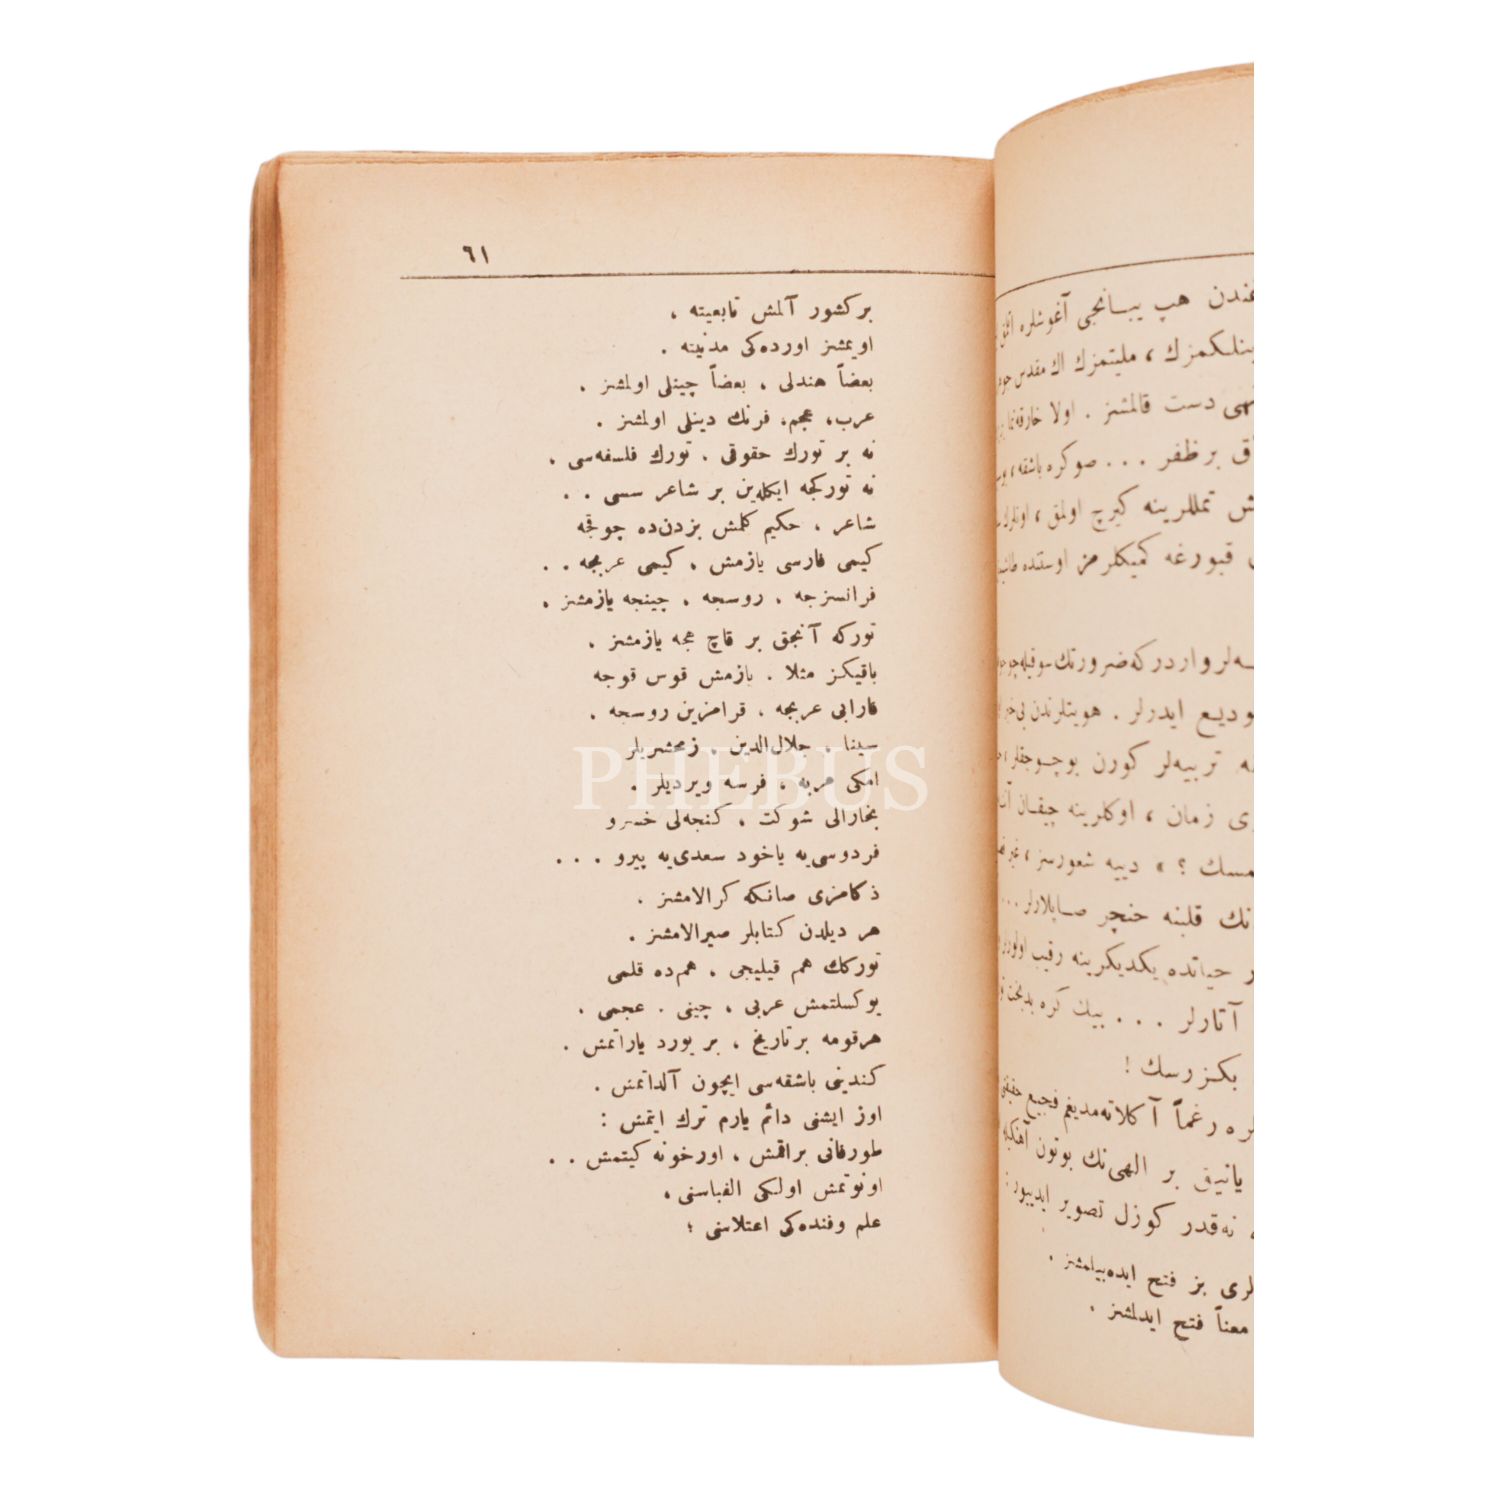 ٦١
بركشور آلمش تابعيته ،
اويمشز اورده‌كى مدنيته .
بعضاً هندلى ، بعضاً چينلى اولمشز .
عرب، عجم، فرنك دينلى اولمشز .
نه بر تورك حقوقى ، تورك فلسفه‌سى ،
نه توركجه ايكله‌ين بر شاعر سسى . .
شاعر ، حكيم كلمش بزدن‌ده چوقجه
كيمى فارسى يازمش ، كيمى عربجه . .
فرانسزجه ، روسجه ، چينجه يازمشز .
توركه آنجق بر قاچ هجه يازمشز .
باقيكز مثلا . يازمش قوس قوجه
فارابى عربجه ، قرامزين روسجه .
سينا ، جلال‌الدين ، زمحشريلر
امكى عربه ، فرسه ويرديلر .
بخارالى شوكت ، كنجه‌لى خسرو
فردوسى‌يه ياخود سعدى‌يه پيرو . . .
ذكامزى صانكه كرالامشز .
هر ديلدن كتابلر صيرالامشز .
توركك هم قيليجى ، هم‌ده قلمى
يوكسلتمش عربى ، چينى . عجمى .
هرقومه برتاريخ ، بر يورد ياراتمش .
كندينى باشقه‌سى ايچون آلداتمش .
اوز ايشنى دائم يارم ترك ايتمش :
طورفانى براقمش ، اورخونه كيتمش . .
اونوتمش اولكى الفباسنى ،
علم وفنده‌كى اعتلاسنى ؛
غندن هپ يبانجى آغوشلره
ينلكمزك ، مليتمزك اك مقدس
تهى دست قالمشز . اولا
ق برظفر . . . صوكره باشقه ،
ش تمللرينه كيرچ اولمق ، اونلرك
قبورغه كميكلرمز اوستنده
ـه‌لر واردركه ضرورتك سوقيله
وديع ايدرلر . هويتلرندن بى‌خبر
ـه تربيه‌لر كورن بوچوجقلر ،
ى زمان ، اوكلرينه چيقان
مسك ؟ » دييه شعورسز ،
نك قلبنه خنچر صاپلارلر . . .
ر حياتده يكديكرينه رقيب اولورلر
آتارلر . . . بيك كره بدبخت
بكزرسك !
ره رغماً آكلاته‌مديغم فجيع
يانيق بر الهى‌نك بوتون
نه‌قدر كوزل تصوير ايدييور :
لرى بز فتح ايده‌بيلمشز .
معناً فتح ايدلمشز .
PHEBUS